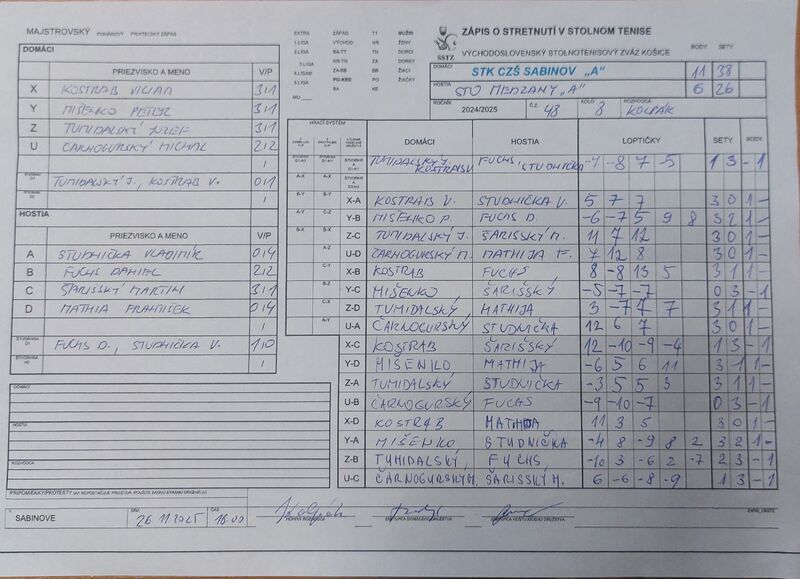 MAJSTROVSKÝ POHÁROVÝ PRIATEĽSKÝ ZÁPAS
DOMÁCI
PRIEZVISKO A MENO V/P
X KOSTRAB VILIAM 3/1
Y MIŠENKO PETER 3/1
Z TUMIDALSKÝ JOZEF 3/1
U ČARNOGURSKÝ MICHAL 2/2
/
TUMIDALSKÝ J., KOSTRAB V. 0/1
HOSTIA
PRIEZVISKO A MENO V/P
A STUDNIČKA VLADIMÍR 0/4
B FUCHS DANIEL 2/2
C ŠARIŠSKÝ MARTIN 3/1
D MATHIA FRANTIŠEK 0/4
/
FUCHS D., STUDNIČKA V. 1/0
/
DOMÁCI
HOSTIA
ROZHODCA
PRIPOMIENKY/PROTESTY
V SABINOVE DŇA 26.11.2025 ČAS 18.00
HLAVNÝ ROZHODCA ZÁSTUPCA DOMÁCEHO DRUŽSTVA ZÁSTUPCA HOSŤUJÚCEHO DRUŽSTVA
EXTRA ZÁPAS TT MUŽI
1.LIGA VÝCHOD HR ŽENY
2.LIGA BA-TT TN DORCI
3.LIGA NR-TN ZA DORKY
4.LIGA ZA-BB BB ŽIACI
5.LIGA PO-KE PO ŽIAČKY
BA KE
SSTZ
ZÁPIS O STRETNUTÍ V STOLNOM TENISE
VÝCHODOSLOVENSKÝ STOLNOTENISOVÝ ZVÄZ KOŠICE
BODY SETY
DOMÁCI STK CZŠ SABINOV „A" 11 38
HOSTIA STO MEDZANY „A" 6 26
ROČNÍK 2024/2025 Č. 48 KOLO 8 ROZHODCA KOLPÁK
HRACÍ SYSTÉM
DOMÁCI HOSTIA LOPTIČKY SETY BODY
TUMIDALSKÝ J. KOSTRAB V. FUCHS, STUDNIČKA -7 -8 7 -5 1 3 - 1
X-A KOSTRAB V. STUDNIČKA V. 5 7 7 3 0 1 -
Y-B MIŠENKO P. FUCHS D. -6 -7 5 9 8 3 2 1 -
Z-C TUMIDALSKÝ J. ŠARIŠSKÝ M. 11 7 12 3 0 1 -
U-D ČARNOGURSKÝ M. MATHIJA F. 7 12 8 3 0 1 -
X-B KOSTRAB FUCHS 8 -8 13 5 3 1 1 -
Y-C MIŠENKO ŠARIŠSKÝ -5 -7 -7 0 3 - 1
Z-D TUMIDALSKÝ MATHIJA 3 -7 7 7 3 1 1 -
U-A ČARNOGURSKÝ STUDNIČKA 12 6 7 3 0 1 -
X-C KOSTRAB ŠARIŠSKÝ 12 -10 -9 -4 1 3 - 1
Y-D MIŠENKO MATHIJA -6 5 6 11 3 1 1 -
Z-A TUMIDALSKÝ STUDNIČKA -3 5 5 3 3 1 1 -
U-B ČARNOGURSKÝ FUCHS -9 -10 -7 0 3 - 1
X-D KOSTRAB MATHIJA 11 3 5 3 0 1 -
Y-A MIŠENKO STUDNIČKA -4 8 -9 8 2 3 2 1 -
Z-B TUMIDALSKÝ FUCHS -10 3 -6 2 -7 2 3 - 1
U-C ČARNOGURSKÝ M. ŠARIŠSKÝ M. 6 -6 -8 -9 1 3 - 1